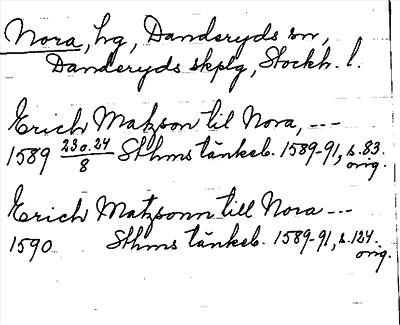 Nora, hg, Danderyds sn,
Danderyds skplg, Stockh. l.
Erich Matzson til Nora, ---
1589 23 o. 24/8 Sthms tänkeb. 1589-91, s. 83. orig.
Erich Matzsonn till Nora ---
1590 Sthms tänkeb. 1589-91, s. 124. orig.